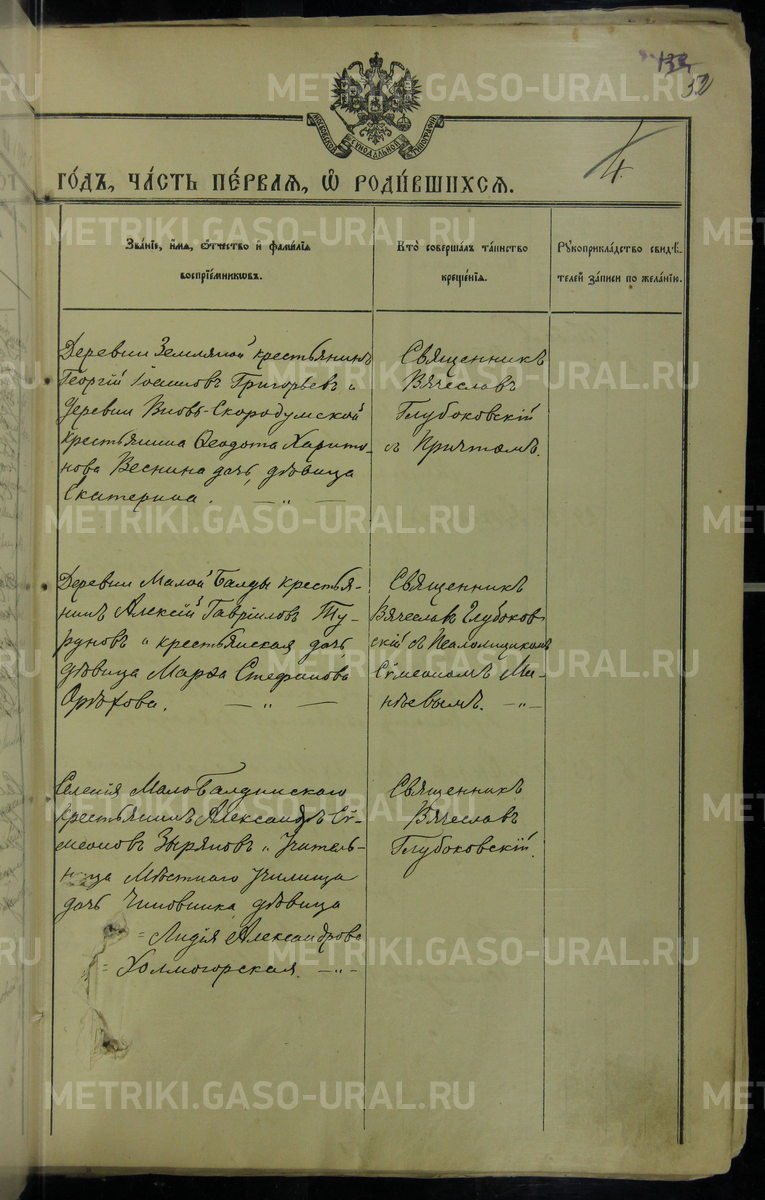 133
32
4
МОСКОВСКОЙ СѴНОДАЛЬНОЙ ТИПОГРАФІИ
ГО́ДЪ, ЧА́СТЬ ПЕ́РВАѦ, Ѡ҆ РОДИ́ВШИХСѦ.
Зва́ніе, и҆́мѧ, ѻ҆́тчество и҆ фами́лїѧ
воспрїе́мникѡвъ.
Кто̀ соверша́лъ та́инство
креще́нїѧ.
Рꙋкоприкла́дство свидѣ́-
телей за́писи по жела́нїю.
Деревни Земляной крестьянинъ
Георгій Іоанновъ Григорьевъ и
Деревни Вновь-Скородумской
крестьянина Ѳеодота Харито-
нова Веснина дочь, дѣвица
Екатерина. — „ —
Священникъ
Вячеславъ
Глубоковскій
съ Причтомъ.
Деревни Малой Балды крестья-
нинъ Алексій Гавріиловъ Ту-
руновъ и крестьянская дочь,
дѣвица Марѳа Стефанова
Орѣхова. — „ —
Священникъ
Вячеславъ Глубоков-
скій съ Псаломщикомъ
Сѵмеономъ Ми-
нѣевымъ. — „ —
Селенія Мало Балдинскаго
крестьянинъ Александръ Сѵ-
меоновъ Зыряновъ и Учитель-
ница Мѣстнаго Училища
дочь Чиновника, дѣвица
= Лидія Александрова
= Холмогорская. — „ —
Священникъ
Вячеславъ
Глубоковскій.
METRIKI.GASO-URAL.RU